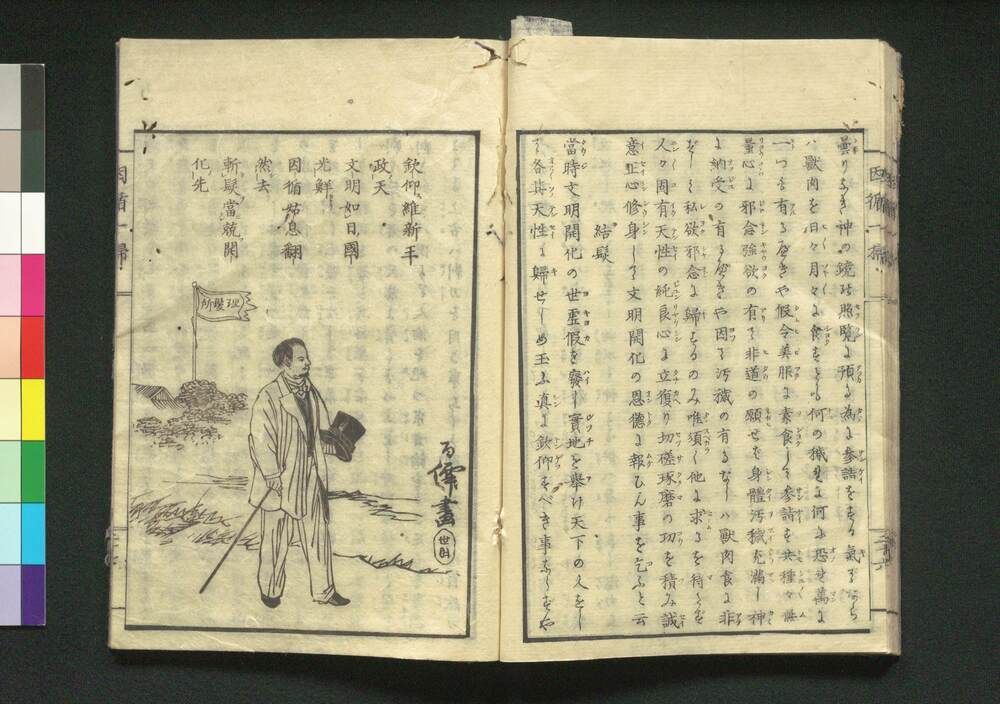 曇りなき神の鏡の照覧に預る為に参詣をする氣ならち
ハ獸肉を日々月々に食をとる何の穢れに何ぶ恐せ萬に
一つも有るべきや假令美服に素食して参詣を共種々無
量心に邪念強欲の有て非道の願せを身體汚穢充滿し神
に納受の有るべきや因る汚穢の有るなしハ獸肉食に非
ずして私欲邪念に歸するのみ唯須く他に求るを待たず
人々固有天性の純良心に立復り切磋琢磨の功を積み誠
意正心修身して文明開化の恩徳に報ひん事を乞ふと云
結髪
當時文明開化の世虚假を廢し實地を舉け天下の人をし
て各其天性に歸せしめ玉ふ真に欽仰すべき事ならずや
因循一掃
欽仰維新王
政天
文明如日國
光鮮
因循苟息翻
然去
斬髮當競開
化先
理髪所
画
因循一掃